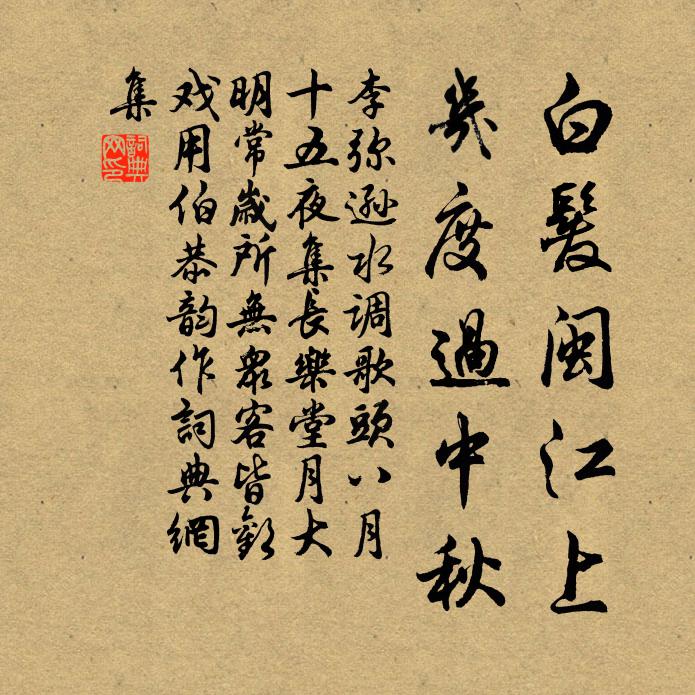 白髮閩江上
幾度過中秋
李弥遜水調歌頭八月
十五夜集長樂堂月大
明常歲所無衆客皆歡
戏用伯恭韵作詞典網
集
詞典
网印